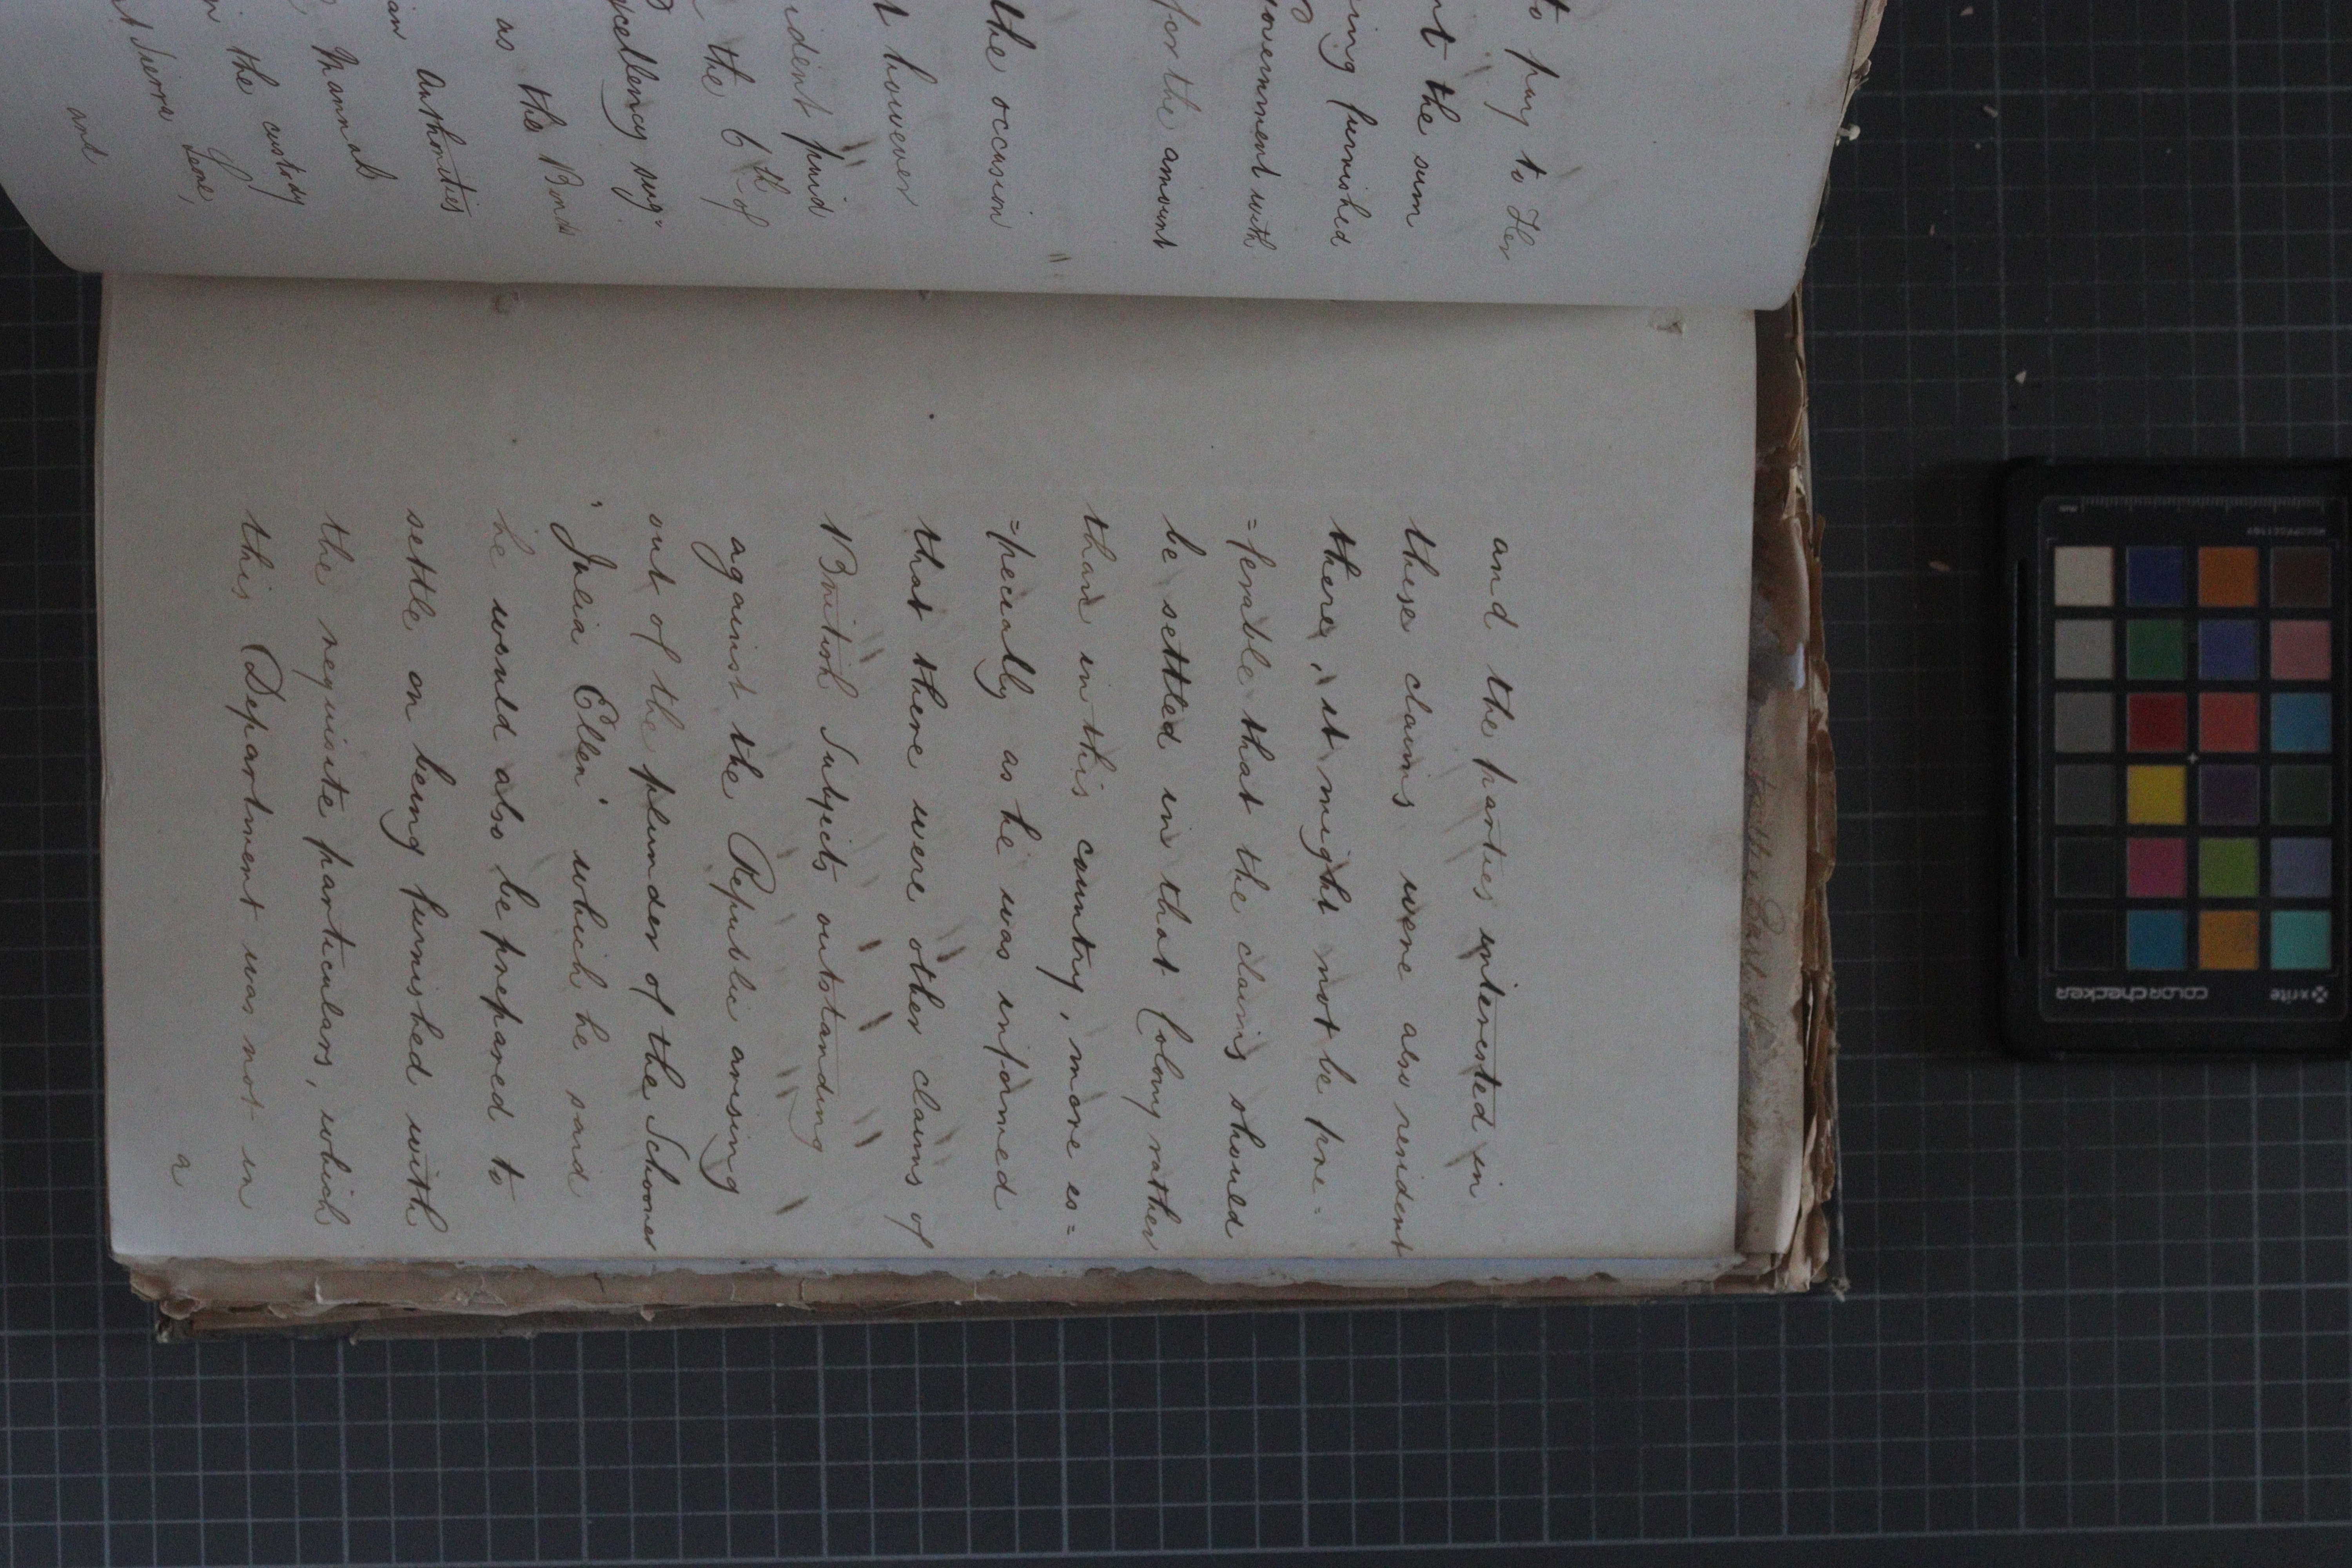 to pay to Her
nt the sum
ing furnished
Government with
for the amount
the occasion
t however
ident paid
the 6th of
xcellency sug=
as the Bonds
an Authorities
Mannah
in the custody of
at Sierra Leone,
and
and the parties interested in
these claims were also resident
there, it might not be pre=
=ferable that the claims should
be settled in that Colony rather
than in this country, more es=
=pecially as he was informed
that there were other claims of
British Subjects outstanding
against the Republic arising
out of the plunder of the Schooner
"Julia Ellen" which he said
he would also be prepared to
settle on being furnished with
the requisite particulars, which
this Department was not in
a
xrite
colorchecker